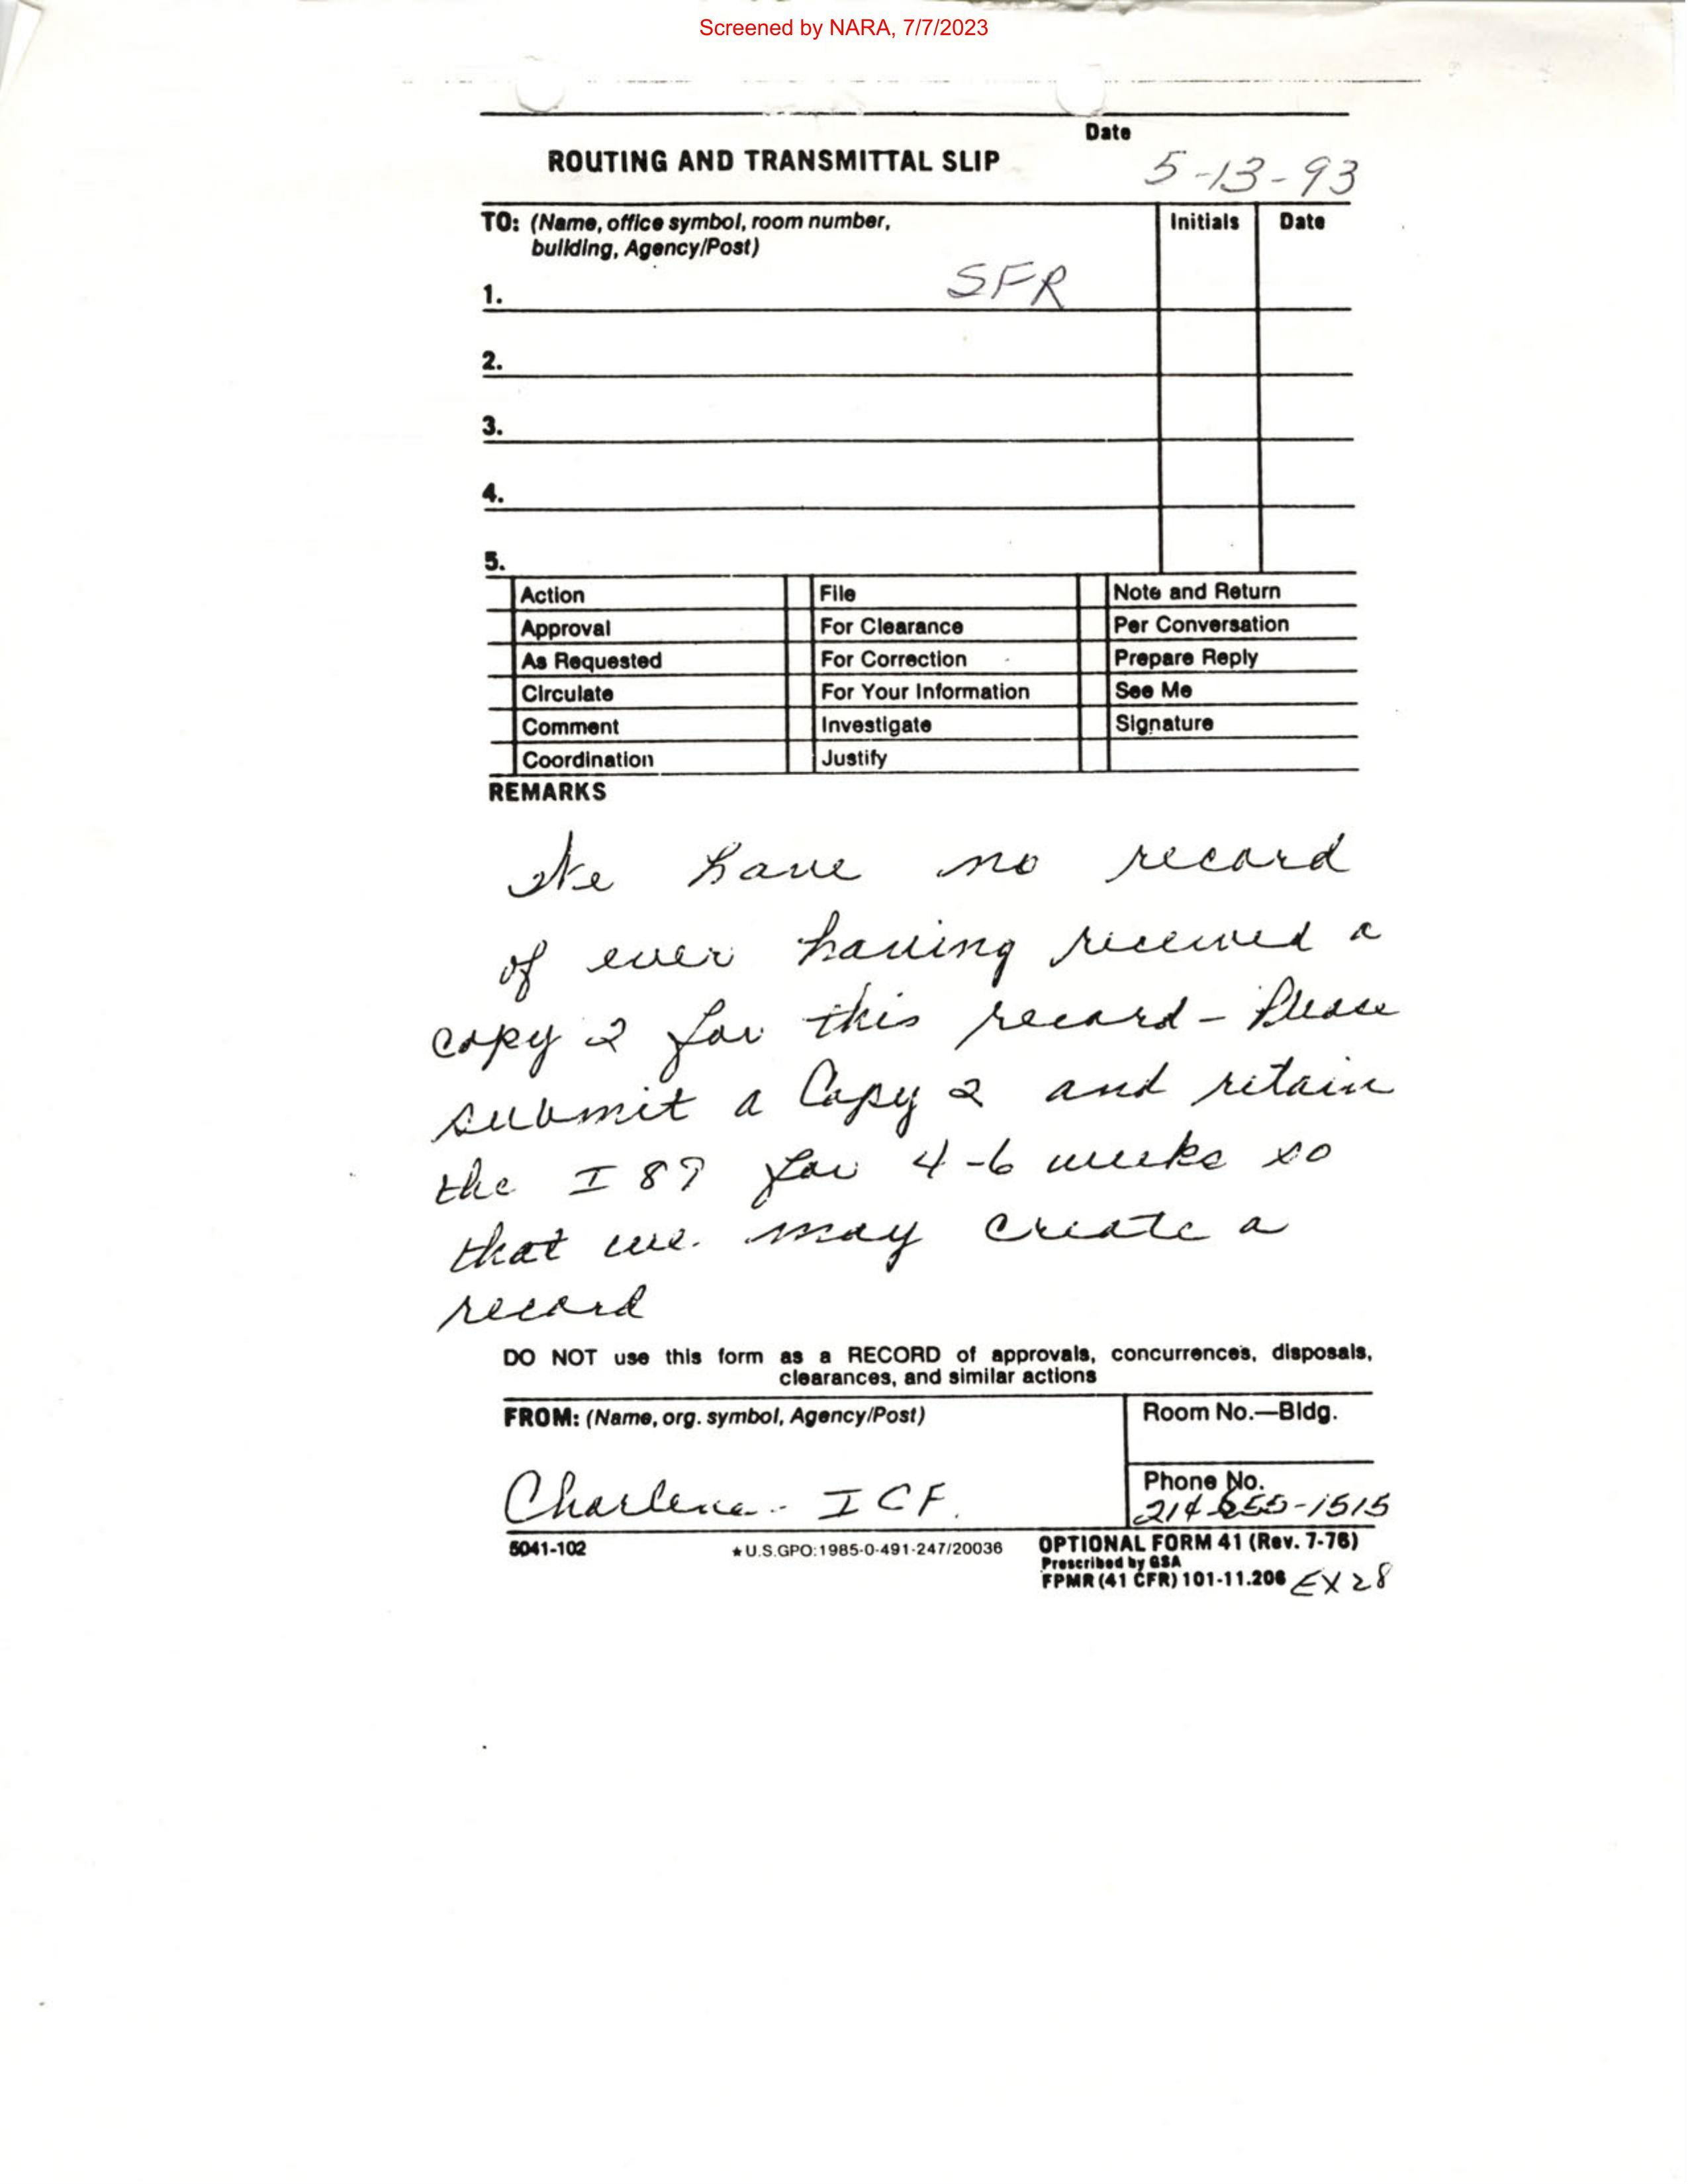 Screened by NARA, 7/7/2023
Date
ROUTING AND TRANSMITTAL SLIP
5-13-93
TO: (Name, office symbol, room number, Initials Date
building, Agency/Post)
1. SFR
2.
3.
4.
5.
Action File Note and Return
Approval For Clearance Per Conversation
As Requested For Correction Prepare Reply
Circulate For Your Information See Me
Comment Investigate Signature
Coordination Justify
REMARKS
We have no record
of ever having received a
copy 2 for this record - Please
submit a Copy 2 and retain
the I 89 for 4-6 weeks so
that we may create a
record
DO NOT use this form as a RECORD of approvals, concurrences, disposals,
clearances, and similar actions
FROM: (Name, org. symbol, Agency/Post) Room No.—Bldg.
Phone No.
Charlene - ICF. 214 655-1515
5041-102 ★ U.S.GPO:1985-0-491-247/20036 OPTIONAL FORM 41 (Rev. 7-76)
Prescribed by GSA
FPMR (41 CFR) 101-11.206 EX 28